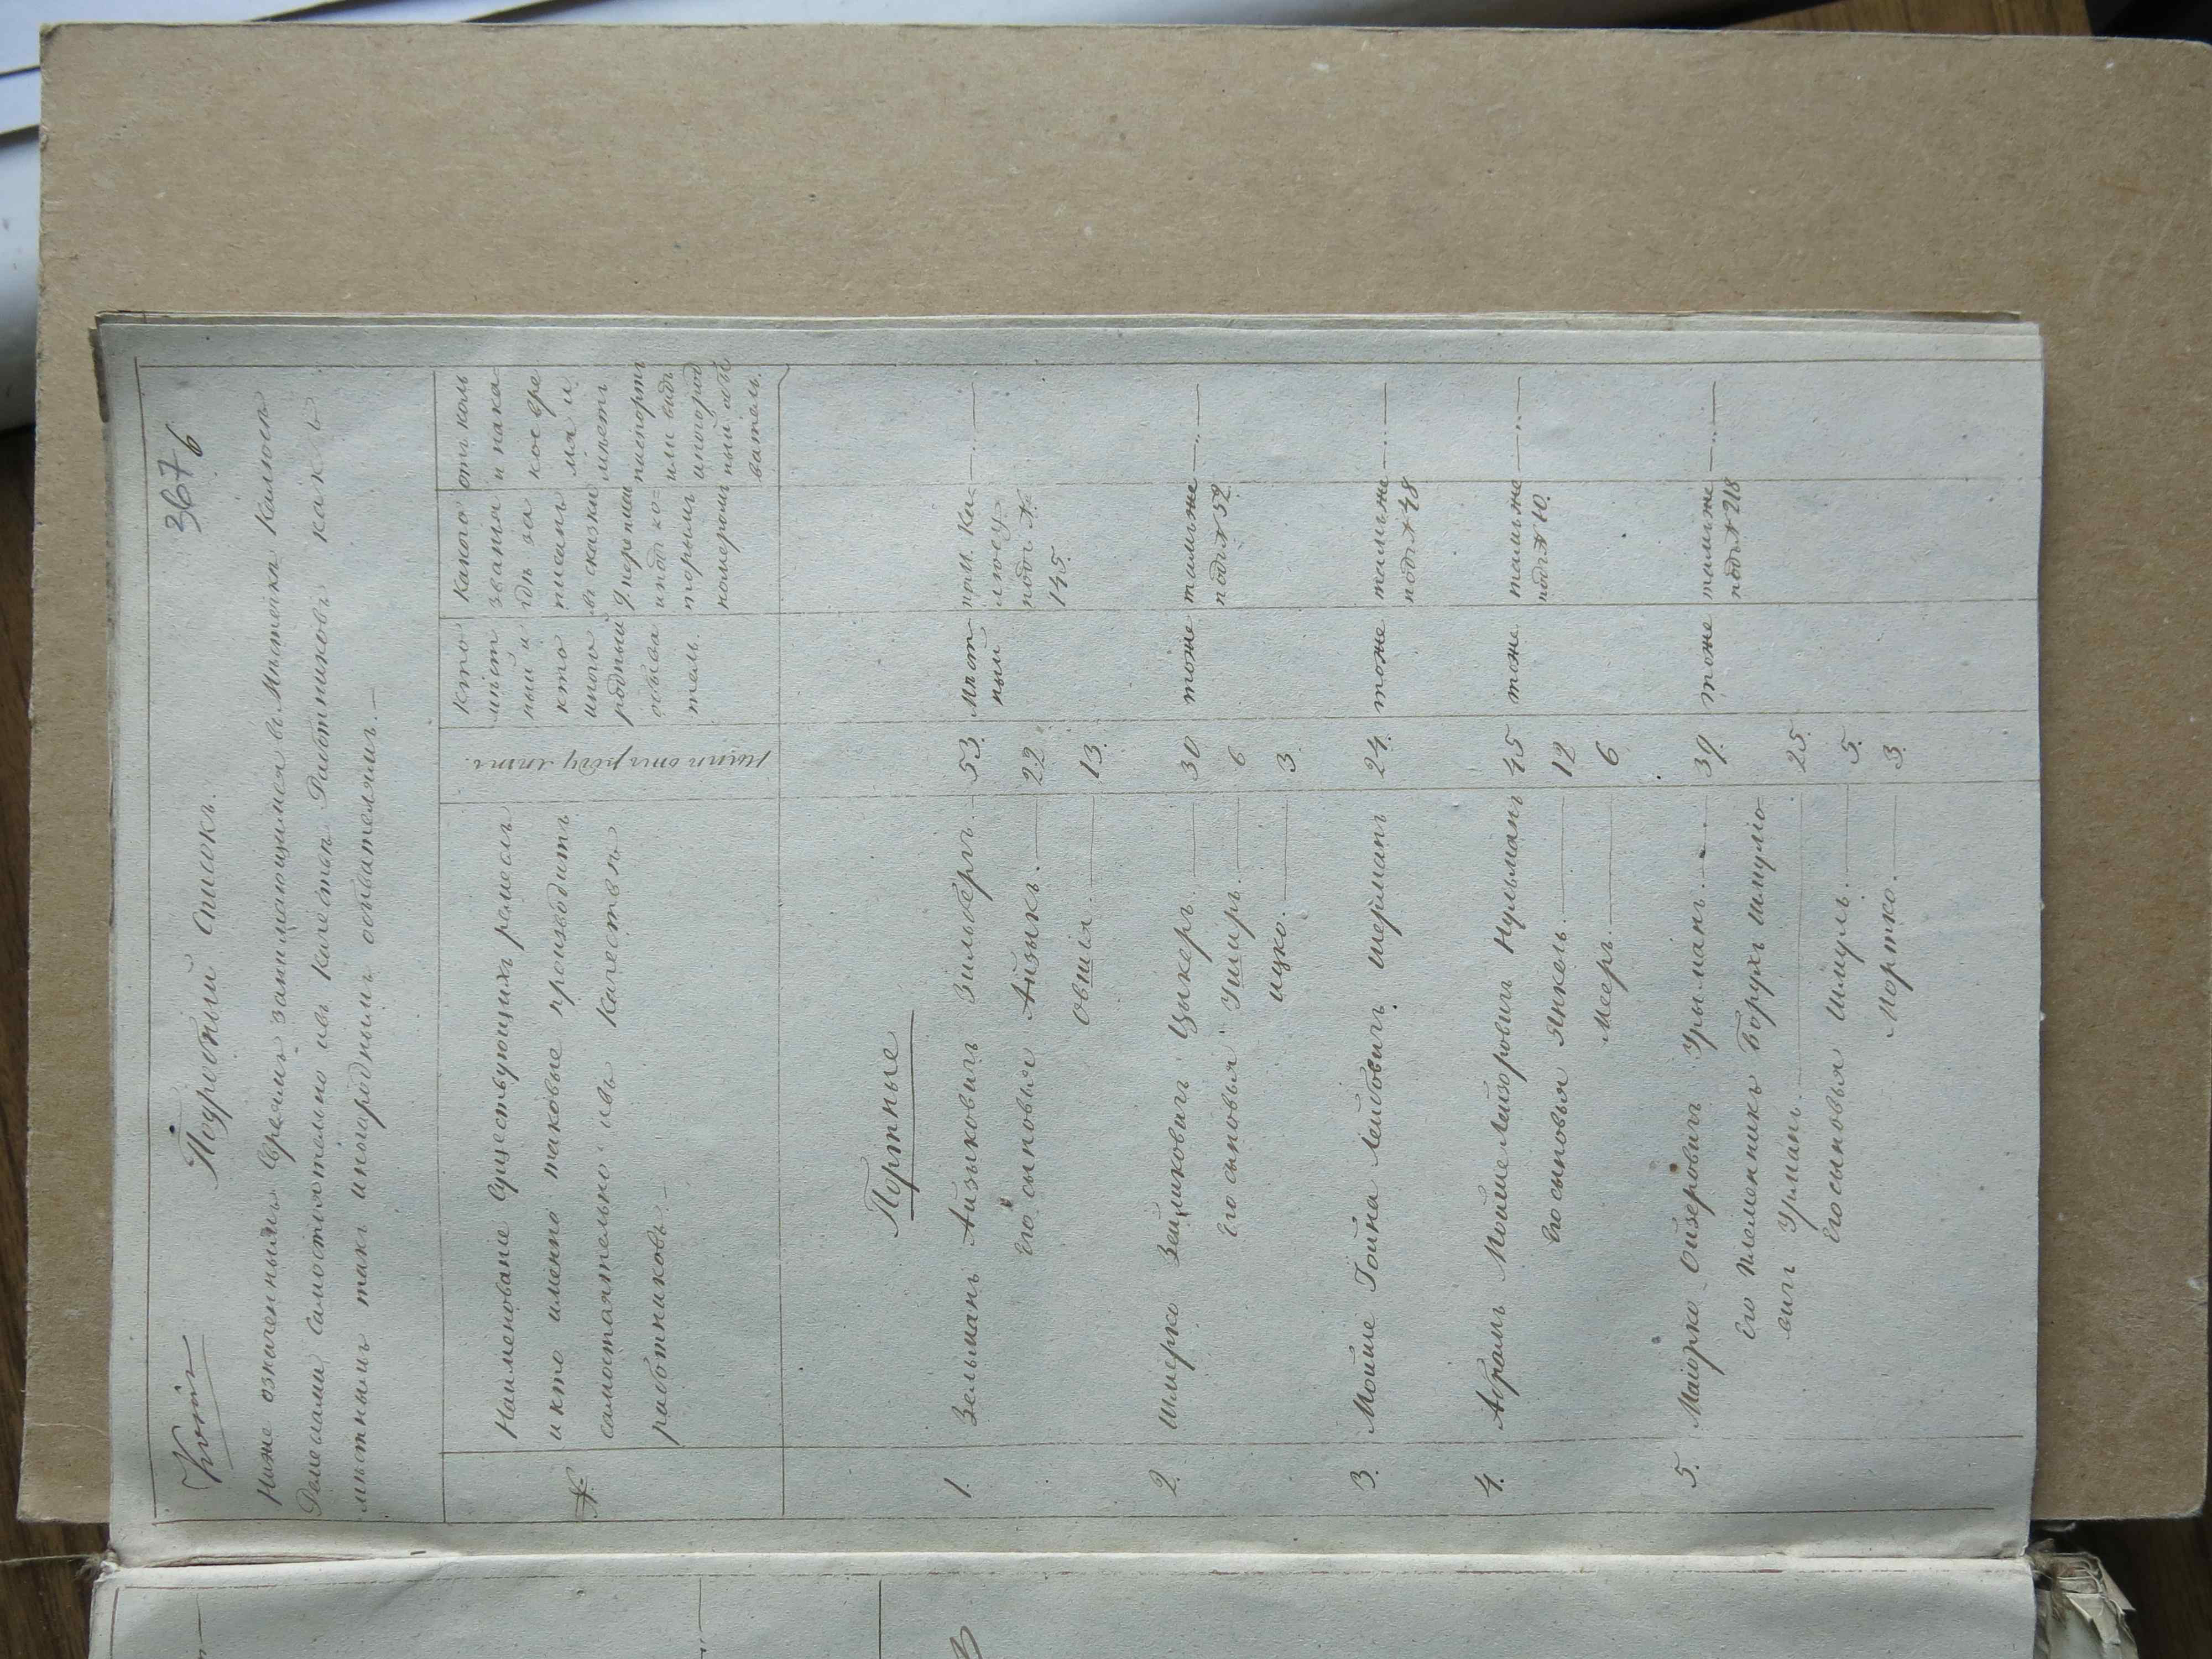 Копія
367
6
Подробный Списокъ.
Ниже означеннымъ Евреямъ занимающимся въ Мѣстечкѣ Калюсѣ
Ремеслами Самостоятельно и въ Качествѣ Работниковъ какъ
мѣстнымъ такъ иногороднымъ обывателямъ.—
№
Наименованіе Существующихъ ремеслъ
и кто именно таковые производитъ
самостоятельно и въ Качествѣ
работниковъ.—
лѣтъ
Кто
мѣст
ный и
кто
иного
родный
обыва
тель.
Какого
званія и
гдѣ за
писанъ
въ сказки
9. переписи
и подъ ко=
торымъ
номеромъ
отъ коль
и на ка=
кое вре
мя и
имѣетъ
паспортъ
или видъ
иногород
ный обы
ватель.
Портные
1. Зельманъ Айзыковичъ Зильберъ.— 53. Мѣст
ный въ М. Ка=
люсу
подъ №
145. —..—
Его сыновья Айзыкъ.— 22.
Овшія.— 13.
2. Шмерко Зейликовичъ Цыкеръ.— 30 тоже тамъже
подъ № 52. —..—
Его сыновья Уширъ.— 6
Ицко.— 3.
3. Мойше Гойна Лейбовичъ Шерманъ 24. тоже тамъже
подъ № 48 —..—
4. Абрамъ Мойше Лейзоровичъ Нульманъ 45 тоже тамъже
подъ № 10. —..—
Его сыновья Янкель.— 12
Мееръ.— 6
5. Маіорко Ойзеровичъ Урыманъ.— 39. тоже тамъже
подъ № 218 —..—
Его племенникъ Борухъ Шмуліо-
вичъ Урманъ.— 25.
Его сыновья Шмуль.— 5.
Мортко.— 3.